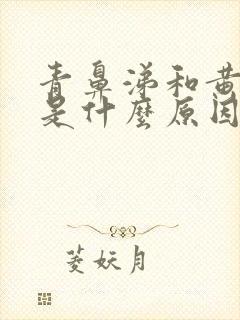 青鼻涕和黄
是什麼原因
菱妖月